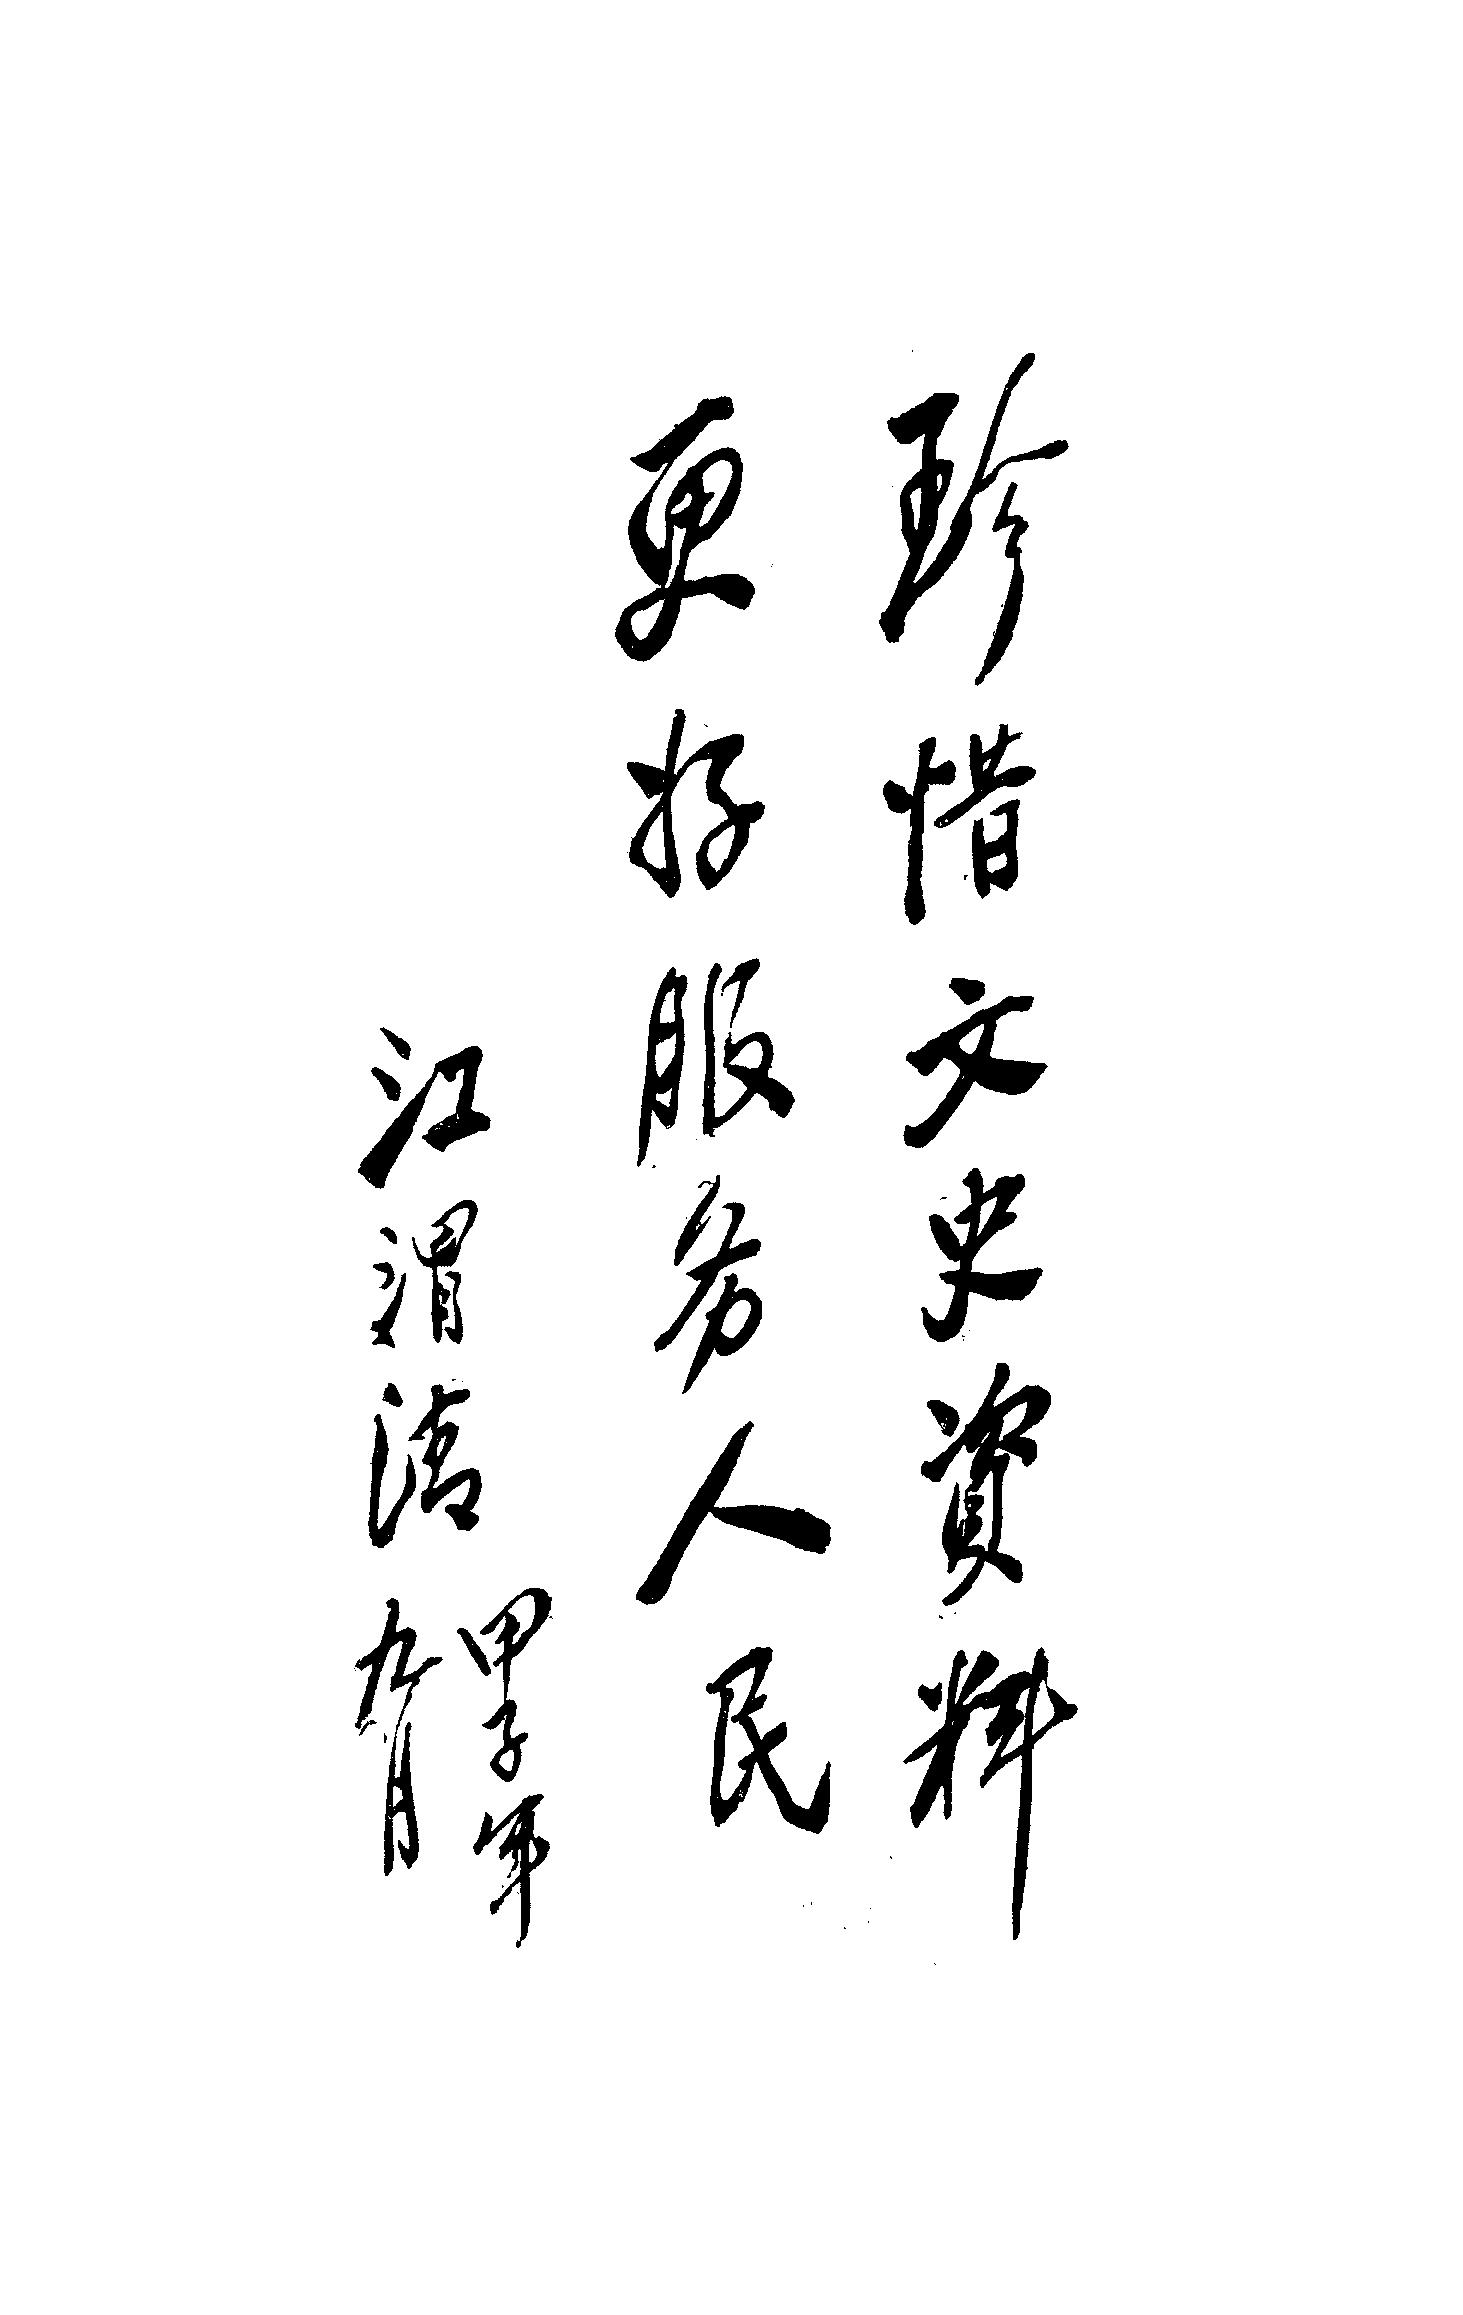 珍惜文史资料
更好服务人民
江渭清
甲子年
九月